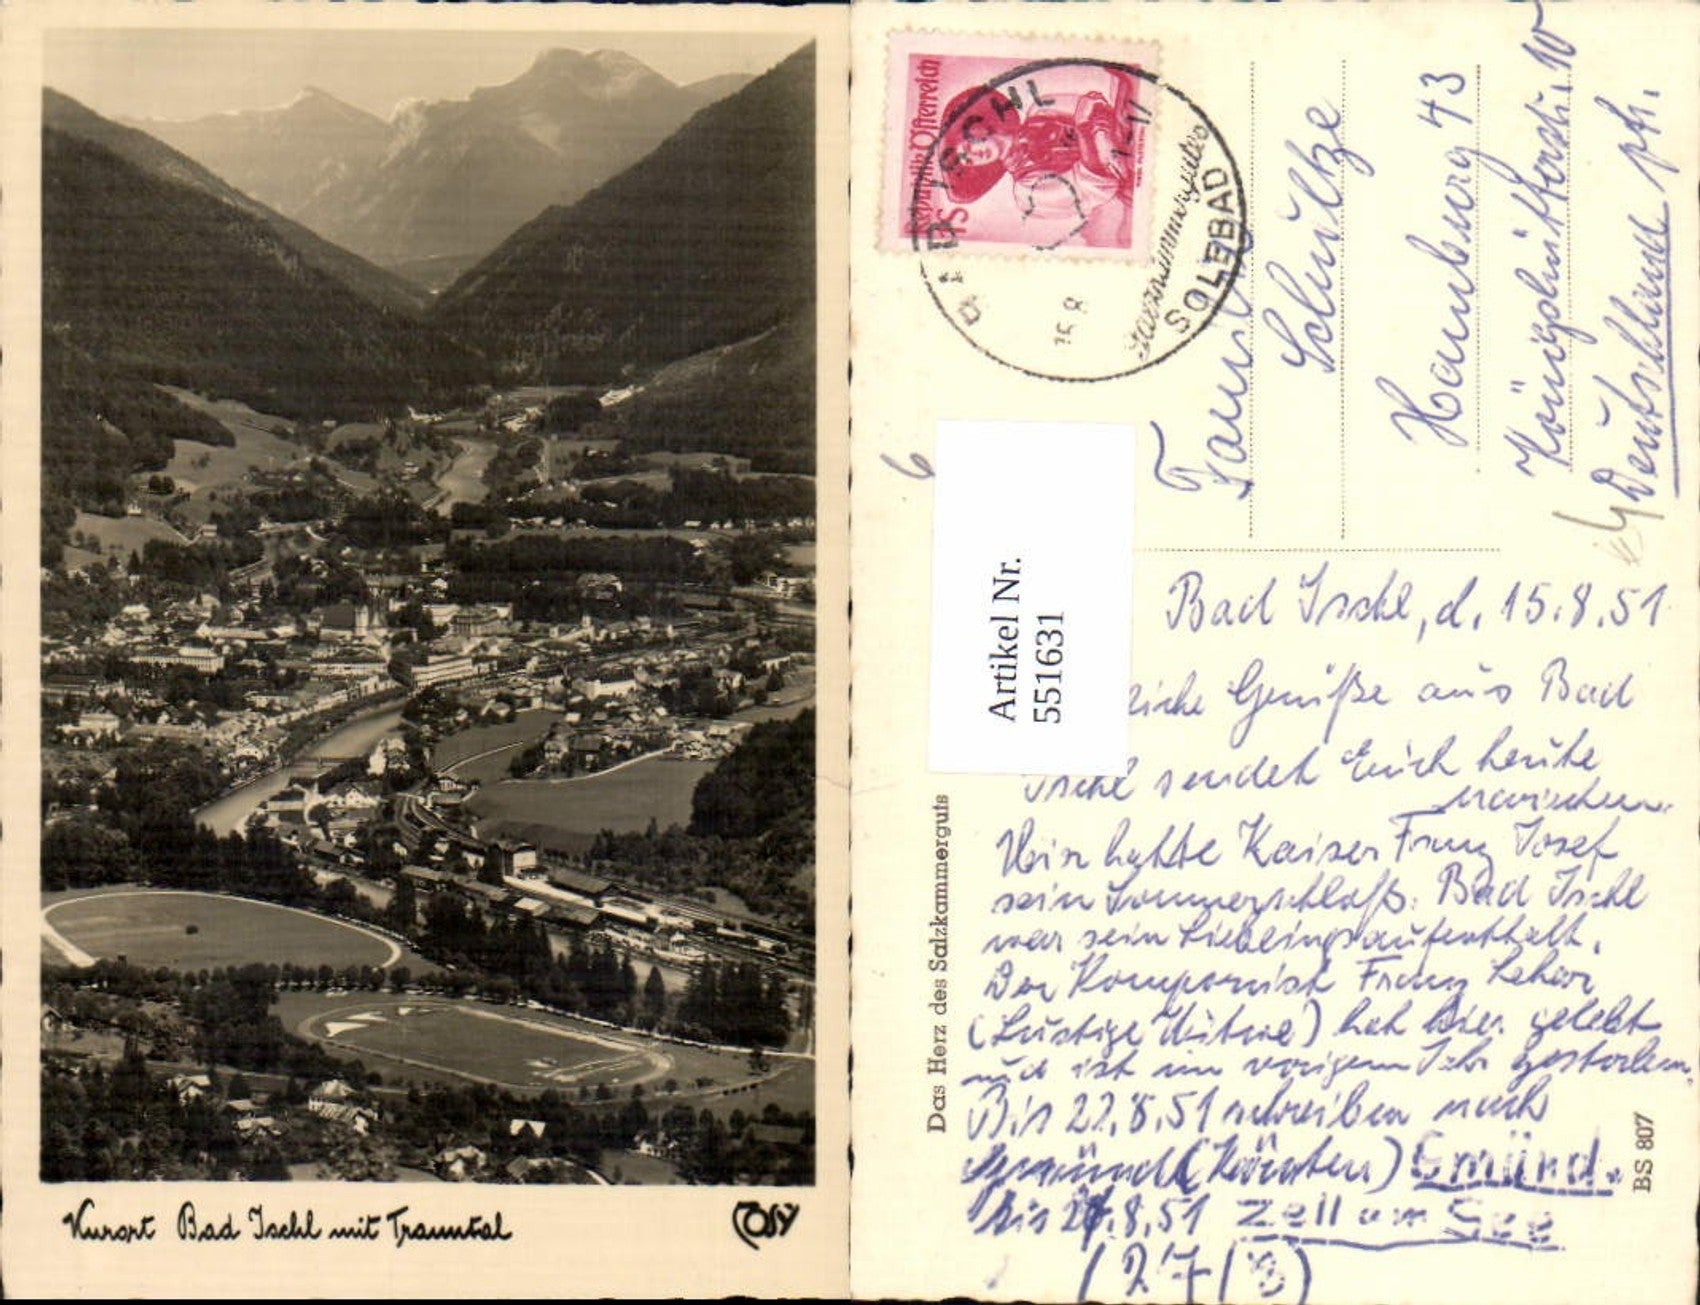 Kurort Bad Ischl mit Trauntal
COSY
Republik Österreich
1S
BAD ISCHL
SOLBAD
15 8
6
Schultze
Hamburg 43
10
Deutschland
Artikel Nr.
551631
Bad Ischl, d. 15.8.51
Grüße aus Bad
Ischl sendet Euch heute
Hier hatte Kaiser Franz Josef
sein Sommerschloß. Bad Ischl
war sein Lieblingsaufenthalt.
Der Komponist Franz Lehar
(Lustige Witwe) hat hier gelebt
und ist im vorigem Jahr gestorben.
Bis 22.8.51 schreiben nach
Gmünd (Kärnten) Gmünd.
bis 27.8.51 Zell am See
(27/8)
Das Herz des Salzkammerguts
BS 807